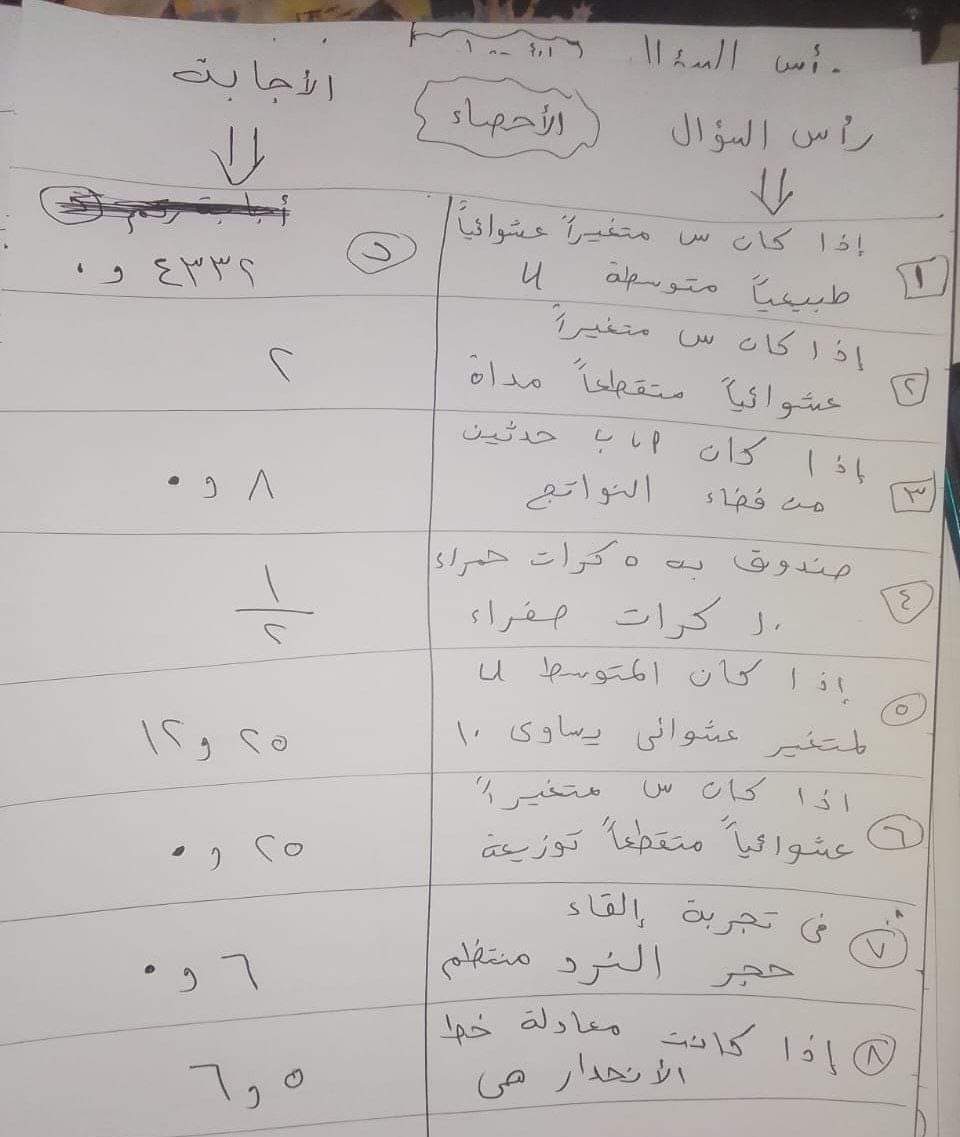 رأس السؤال
الأجابة
الأحصاء
رأس السؤال
١ إذا كان س متغيراً عشوائياً
طبيعياً متوسطة μ
د
٤٣٣٢ و ٠
٢ إذا كان س متغيراً
عشوائياً متقطعاً مداة
٢
٣ إذا كان ٩، ب حدثين
من فضاء النواتج
٨ و ٠
٤ صندوق به ٥ كرات حمراء
١٠ كرات صفراء
١
٢
٥ إذا كان المتوسط μ
لمتغير عشوائى يساوى ١٠
٢٥ و ١٢
٦ اذا كان س متغيراً
عشوائياً متقطعاً توزيعة
٢٥ و ٠
٧ فى تجربة إلقاء
حجر النرد منتظم
٦ و ٠
٨ إذا كانت معادلة خط
الأنحدار هى
٥ و ٦